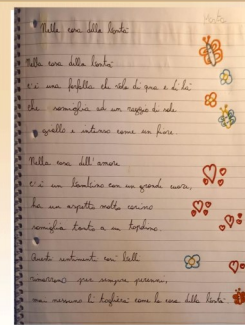 Nella casa della bontà
Nella casa della bontà
c'è una farfalla che vola di qua e di là
che somiglia ad un raggio di sole
giallo e intenso come un fiore.
Nella casa dell'amore
c'è un bambino con un grande cuore,
ha un aspetto molto carino
somiglia tanto a un topolino.
Questi sentimenti così belli
rimarranno per sempre,
ma nessuno li toglierà come la casa della bontà